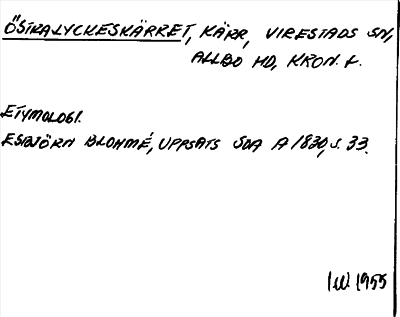 ÖSTRALYCKESKÄRRET, KÄRR, VIRESTADS SN,
ALLBO HD, KRON. L.
ETYMOLOGI.
ESBJÖRN BLOHMÉ, UPPSATS SDA A 1830, S. 33.
IW 1955